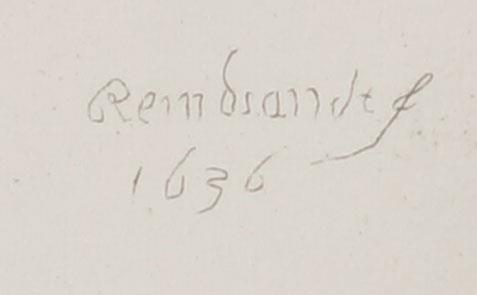 Rembrandt f
1636